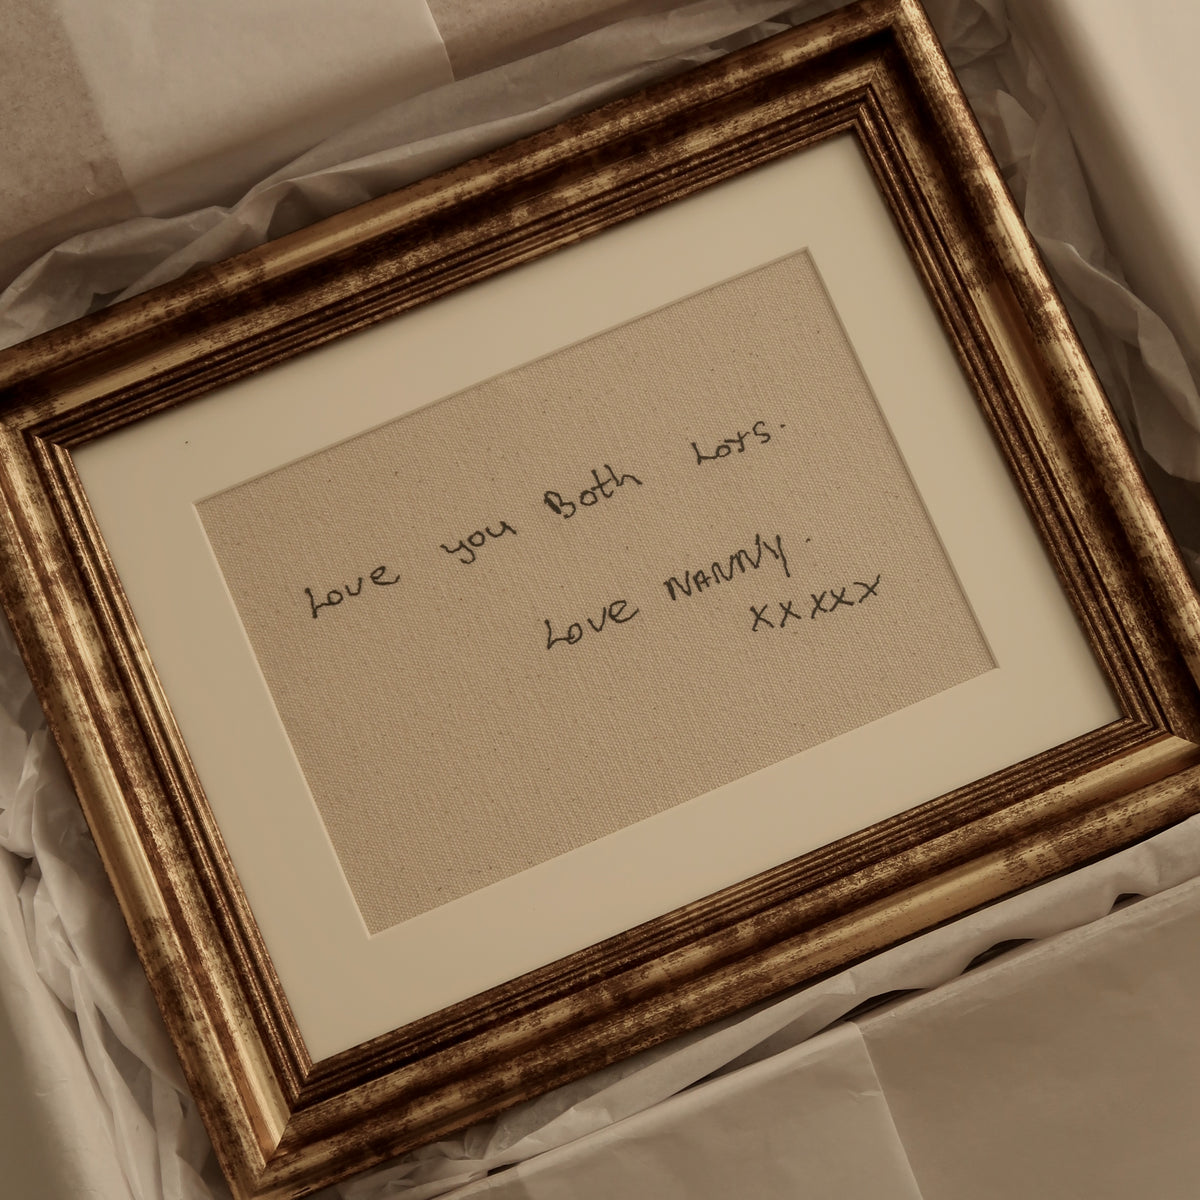 Love you Both Lots.
Love NANNY.
xxxxx